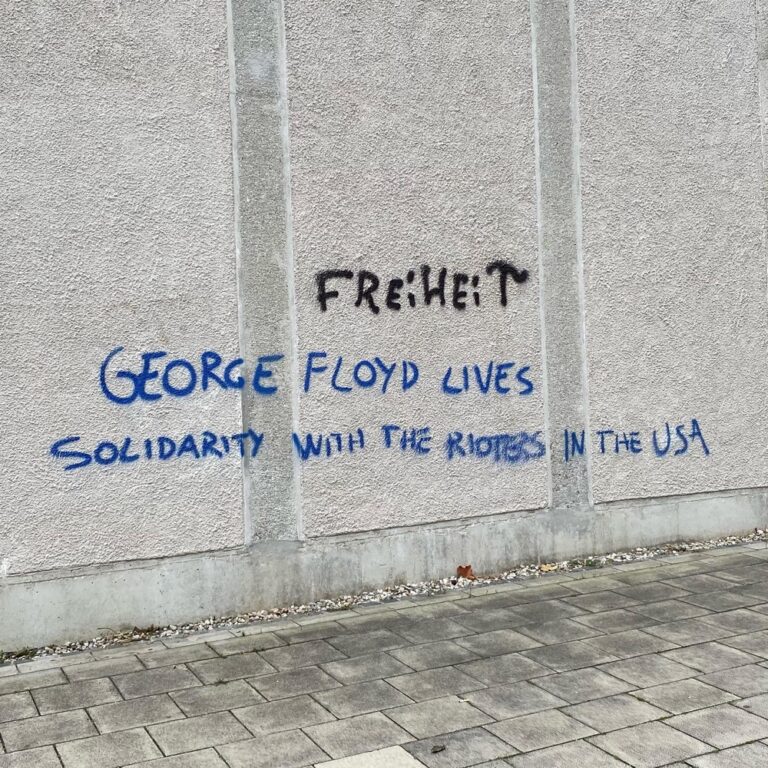 FREiHEiT
GEORGE FLOYD LIVES
SOLIDARITY WITH THE RIOTERS IN THE USA